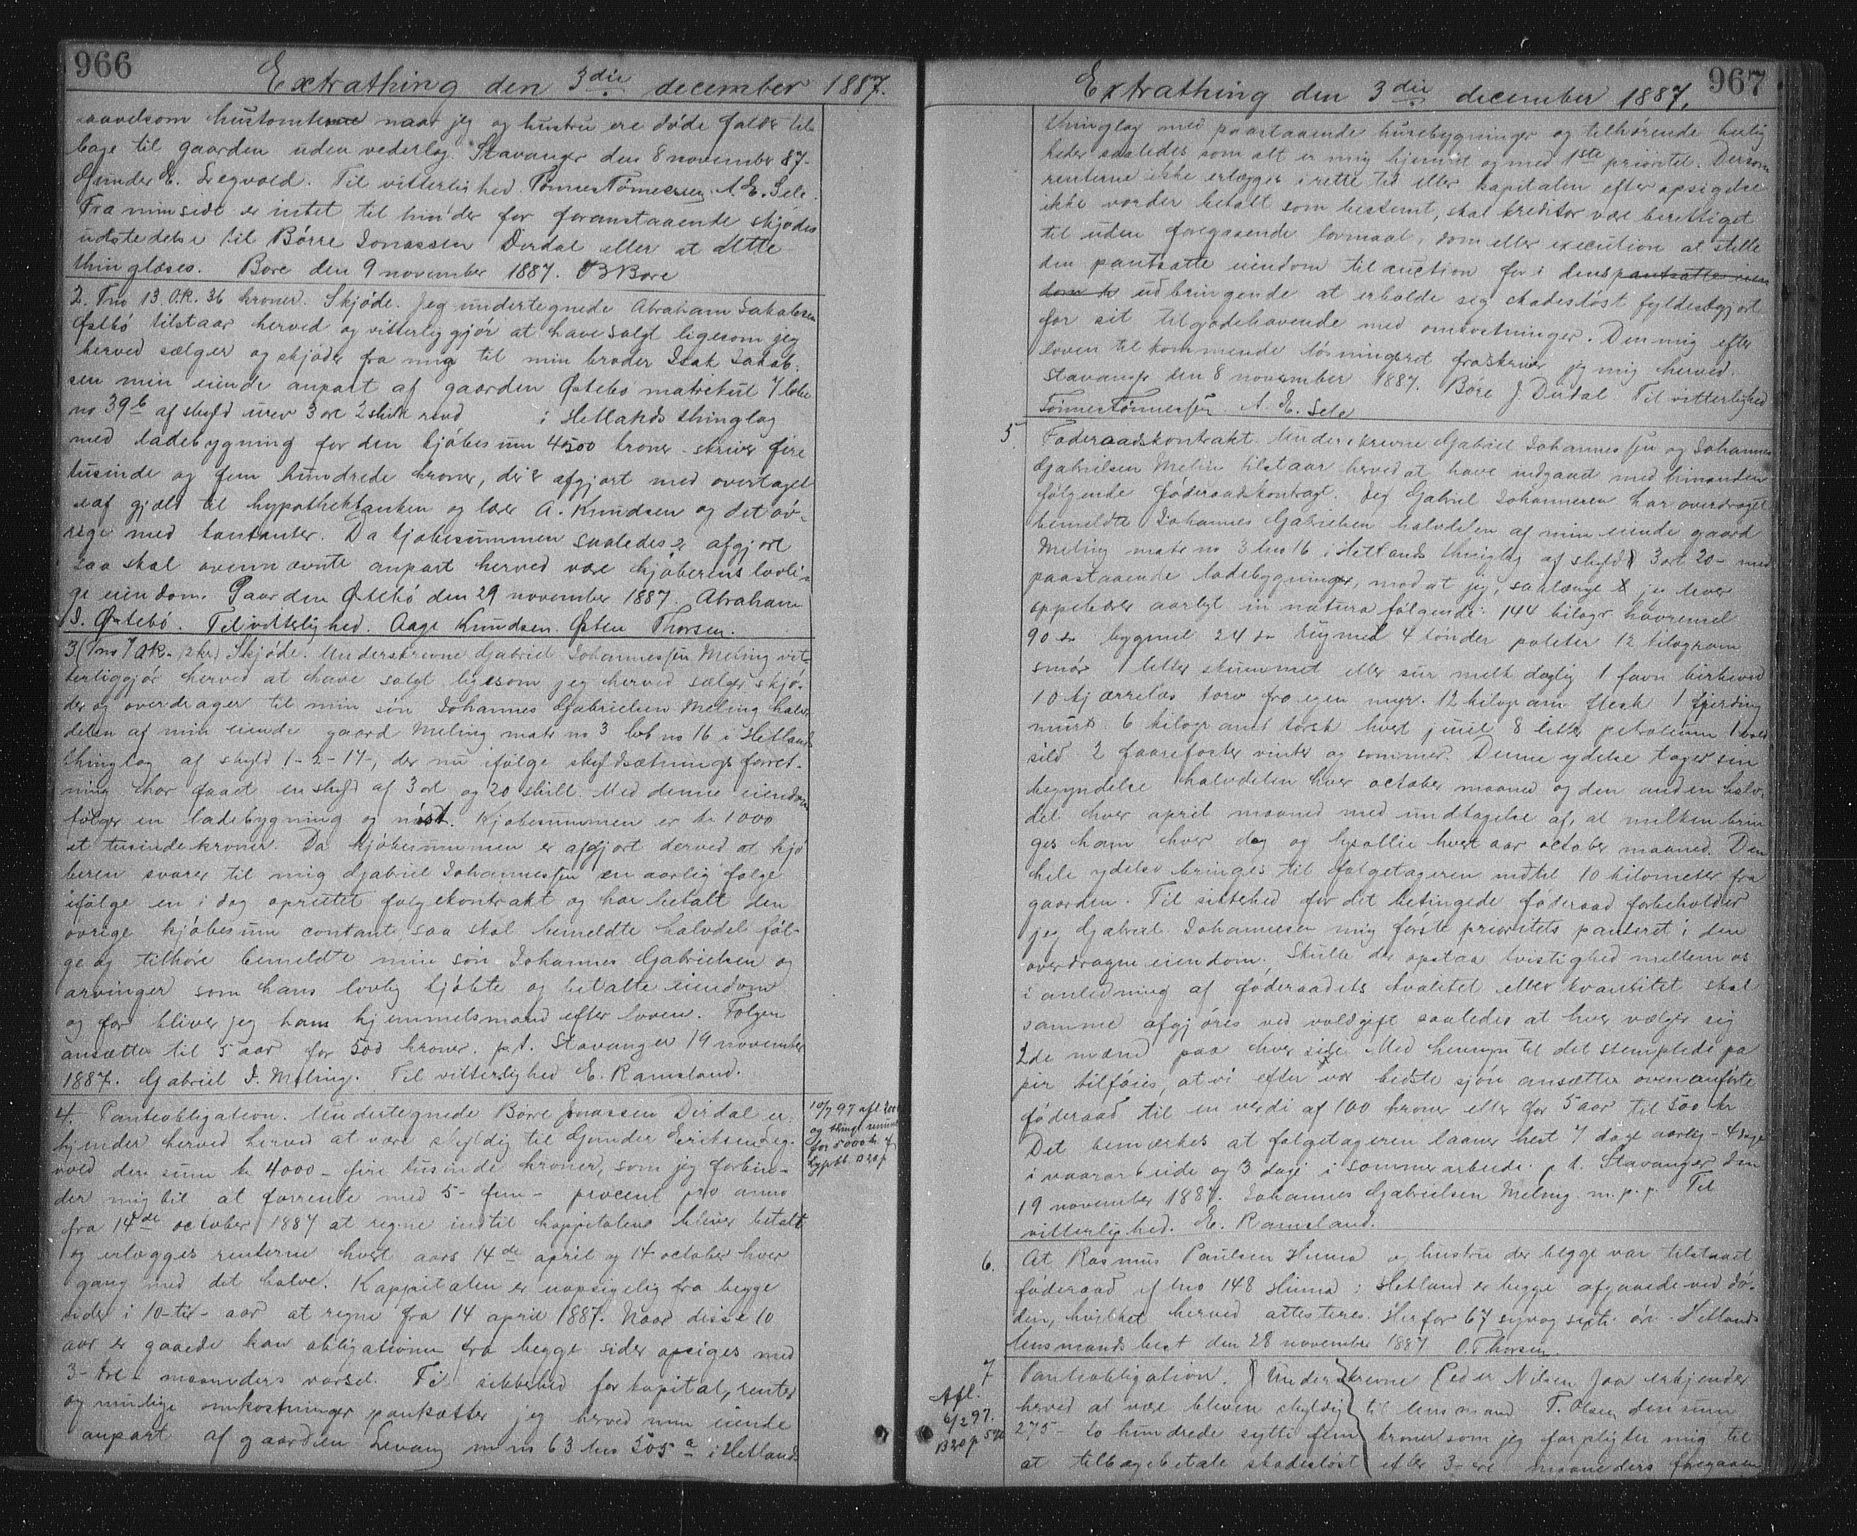 966
Extrathing den 3die december 1887.
saavelsom hustomterne naar jeg og hustru ere døde falder til-
bage til gaarden uden vederlag. Stavanger den 8 november 87.
Gunder E. Legvold. Til vitterlighed Tønnes Tønnessen. A E. Sele.
Fra min side er intet til hinder for foranstaaende skjødes
udstedelse til Børre Jonassen Dirdal eller at dette
thinglæses. Bore den 9 november 1887. B Bore
2. Tno 13. O.R. 36 kroner. Skjøde. Jeg undertegnede Abraham Jakobsen
Østbø tilstaar herved og vitterliggjør at have solgt ligesom jeg
herved sælger og skjøder fra mig til min broder Isak Jakob-
sen min eiende anpart af gaarden Østebø matrikul 7 løbe
no 39b af skyld urev 3 ort 2 skill revd i Hetlands thinglag
med ladebygning for den kjøbesum 4500 kroner skriver fire
tusinde og fem hundrede kroner, der er afgjort med overtagel-
se af gjæld til hypothekbanken og lærer A. Knudsen og det øv-
rige med contanter. Da kjøbesummen saaledes er afgjort
saa skal ovennævnte anpart herved være kjøberens lovli-
ge eiendom. Gaarden Østebø den 29 november 1887. Abraham
J. Østebø. Til vitterlighed. Aage Knudsen. Østen Thorsen.
3. (Tno 7 O.R. 12 kr) Skjøde. Underskrevne Gabriel Johannessen Meling vit-
terliggjør herved at have solgt ligesom jeg herved sælger skjø-
der og overdrager til min søn Johannes Gabrielsen Meling halv-
delen af min eiende gaard Meling matr no 3 løb no 16 i Hetlands
thinglag af skyld 1-2-17-, der nu ifølge skyldsætningsforret-
ning har faaet en skyld af 3 ort og 20 skill. Med denne eiendom
følger en ladebygning og nøst. Kjøbesummen er kr 1000
et tusinde kroner. Da kjøbesummen er afgjort derved at kjø-
beren svarer til mig Gabriel Johannessen en aarlig følge
ifølge en i dag oprettet følgekontrakt og har betalt den
øvrige kjøbesum contant, saa skal bemeldte halvdel føl-
ge og tilhøre bemeldte min søn Johannes Gabrielsen og
arvinger som hans lovlig kjøbte og betalte eiendom
og for bliver jeg hans hjemmelsmand efter loven. Følgen
ansættes til 5 aar for 500 kroner. p.t. Stavanger 19 november
1887. Gabriel J. Meling. Til vitterlighed E. Ramsland.
4. Panteobligation. Undertegnede Børre Jonassen Dirdal er-
kjender herved herved at være skyldig til Gunder Eriksen Leg-
vold den sum kr 4000 - fire tusinde kroner, som jeg forbin-
der mig til at forrente med 5 - fem - procent pro anno
fra 14de october 1887 at regne indtil kappitalen bliver betalt
og erlægges renterne hvert aars 14de april og 14 october hver
gang med det halve. Kappitalen er uopsigelig fra begge
sider i 10 - ti - aar at regne fra 14 april 1887. Naar disse 10
aar er gaaede kan obligationen fra begge sider opsiges med
3 - tre - maaneders varsel. Til sikkerhed for kapital, renter
og mulige omkostninger pantsætter jeg herved min eiende
anpart af gaarden Levang m no 63 lno 305a i Hetlands
10/7 97 afl
for 5000 kr
hypbk B20 p
967
Extrathing den 3die december 1887.
thinglag med paastaaende husebygninger og tilhørende herlig-
heder saaledes som alt er mig hjemlet og med 1ste prioritet. Dersom
renterne ikke erlægges i rette tid eller kapitalen efter opsigelse
ikke vorder betalt som bestemt, skal kreditor være berettiget
til uden foregaaende lovmaal, dom eller execution at stille
den pantsatte eiendom til auction for i dens pantsatte eien
dom til udbringende at erholde sig skadesløst fyldestgjort
for sit tilgodehavende med omkostninger. Den mig efter
loven tilkommende løsningsret fraskriver jeg mig herved.
Stavanger den 8 november 1887. Børe J. Dirdal Til vitterlighed
Tønnes Tønnessen A E. Sele
5 Føderaadskontrakt. Underskrevne Gabriel Johannessen og Johannes
Gabrielsen Meling tilstaar herved at have indgaaet med hinanden
følgende føderaadskontragt. Jeg Gabriel Johannesen har overdraget
bemeldte Johannes Gabrielsen halvdelen af min eiende gaard
Meling matr no 3 lno 16 i Hetlands thinglag af skyld 3 ort 20 - med
paastaaende ladebygninger, mod at jeg, saalænge jeg lever
oppebærer aarligt in natura følgende: 144 kilogr havremel
90 do bygmel 24 do rugmel 4 tønder poteter 12 kilogram
smør 1 litter skummet eller sur melk daglig 1 favn birkeved
10 kjærrelæs torv fra egen myr. 12 kilogram flesk 1 fjerding
murt 6 kilogram tørsk hvert juul 8 litter petroleum 1
sild 2 faarefoster vinter og sommer. Denne ydelse tager sin
begyndelse halvdelen hver october maaned og den anden halv-
del hver april maaned med undtagelse af, at melken brin-
ges ham hver dag og lysollie hvert aar october maaned. Den
hele ydelse bringes til følgetageren indtil 10 kilometer fra
gaarden. Til sikkerhed for det betingede føderaad forbeholder
jeg Gabriel Johannessen mig første prioritets panteret i den
overdragne eiendom. Skulle der opstaa tvistighed mellem os
i anledning af føderaadets kvalitet eller kvantitet skal
samme afgjøres ved voldgift saaledes at hver vælger sig
2de mænd paa hver side. Med hensyn til det stemplede pa-
pir tilføies, at vi efter vor bedste skjøn ansætter ovenanførte
føderaad til en verdi af 100 kroner eller for 5 aar til 500 kr
Det bemærkes at følgetageren laaner hest 7 dage aarlig - 4 dage
i vaararbeide og 3 dage i sommerarbeide. p t. Stavanger den
19 november 1887. Johannes Gabrielsen Meling m. p. p. Til
vitterlighed. E. Ramsland.
6. At Rasmus Paulsen Hinna og hustru der begge var tilstaaet
føderaad af lno 148 Hinna i Hetland er begge afgaaede ved dø-
den, hvilket herved attesteres. Herfor 67 syv og seksti øre. Hetlands
lensmandsbest den 28 november 1887 O. Thorsen.
7 Panteobligation. Underskrevne Peder Nilsen Jaa erkjender
herved at være bleven skyldig til lensmand T. Olsen den sum
275 - to hundrede sytti fem kroner som jeg forpligter mig til
at tilbagebetale skadesløst efter 3 - tre - maaneders foregaaen
Afl.
6/2 97.
B20 p 5